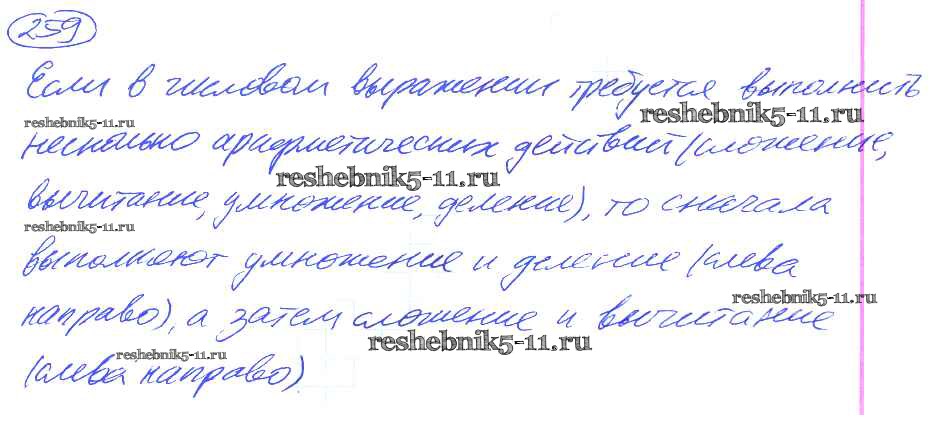 259
Если в числовом выражении требуется выполнить
reshebnik5-11.ru
reshebnik5-11.ru
несколько арифметических действий (сложение,
reshebnik5-11.ru
вычитание, умножение, деление), то сначала
reshebnik5-11.ru
выполняют умножение и деление (слева
reshebnik5-11.ru
направо), а затем сложение и вычитание
reshebnik5-11.ru
reshebnik5-11.ru
(слева направо)